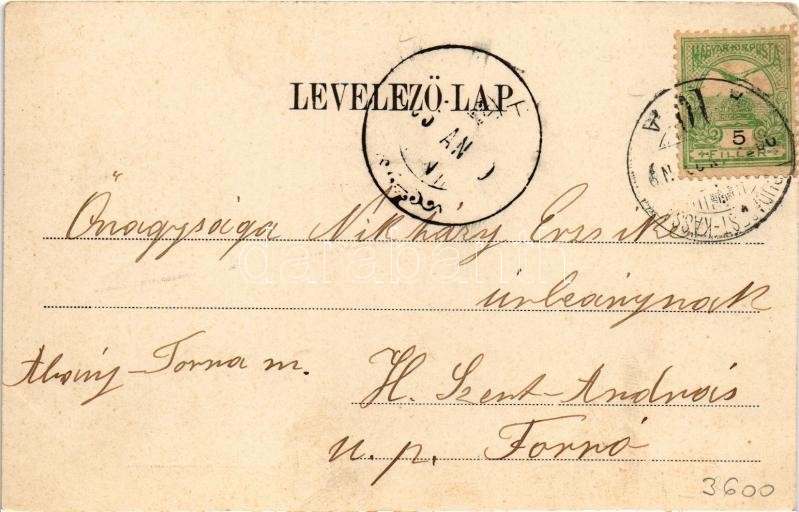 LEVELEZŐ-LAP
MAGYAR KIR. POSTA
5
FILLÉR
Őnagysága Nikházy Erzsik
úrleánynak
Abauj-Torna m.
H. Szent-András
u. p. Forró
3600
darabanth